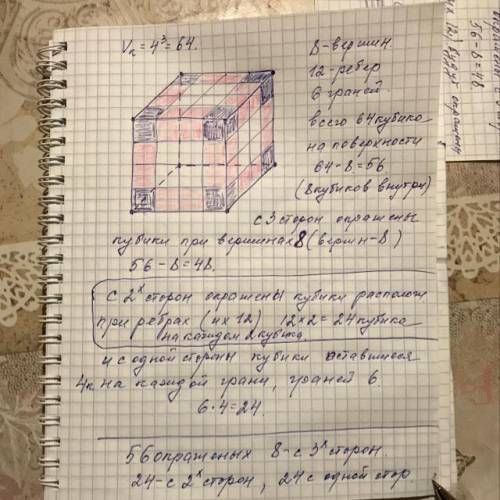 Vк = 4³ = 64.
8-вершин.
12-ребер
6 граней.
всего 64 кубика
на поверхности
64-8=56
(8 кубиков внутри)
с 3 сторон окрашены
кубики при вершинах 8 (вершин-8)
56-8=48.
с 2х сторон окрашены кубики располож
при ребрах (их 12) 12×2=24 кубика
на каждом 2 кубика.
и с одной стороны кубики оставшиеся
4к на каждой грани, граней 6.
6·4=24.
56 окрашеных 8-с 3х сторон.
24-с 2х сторон, 24 с одной стор.
56-8=48